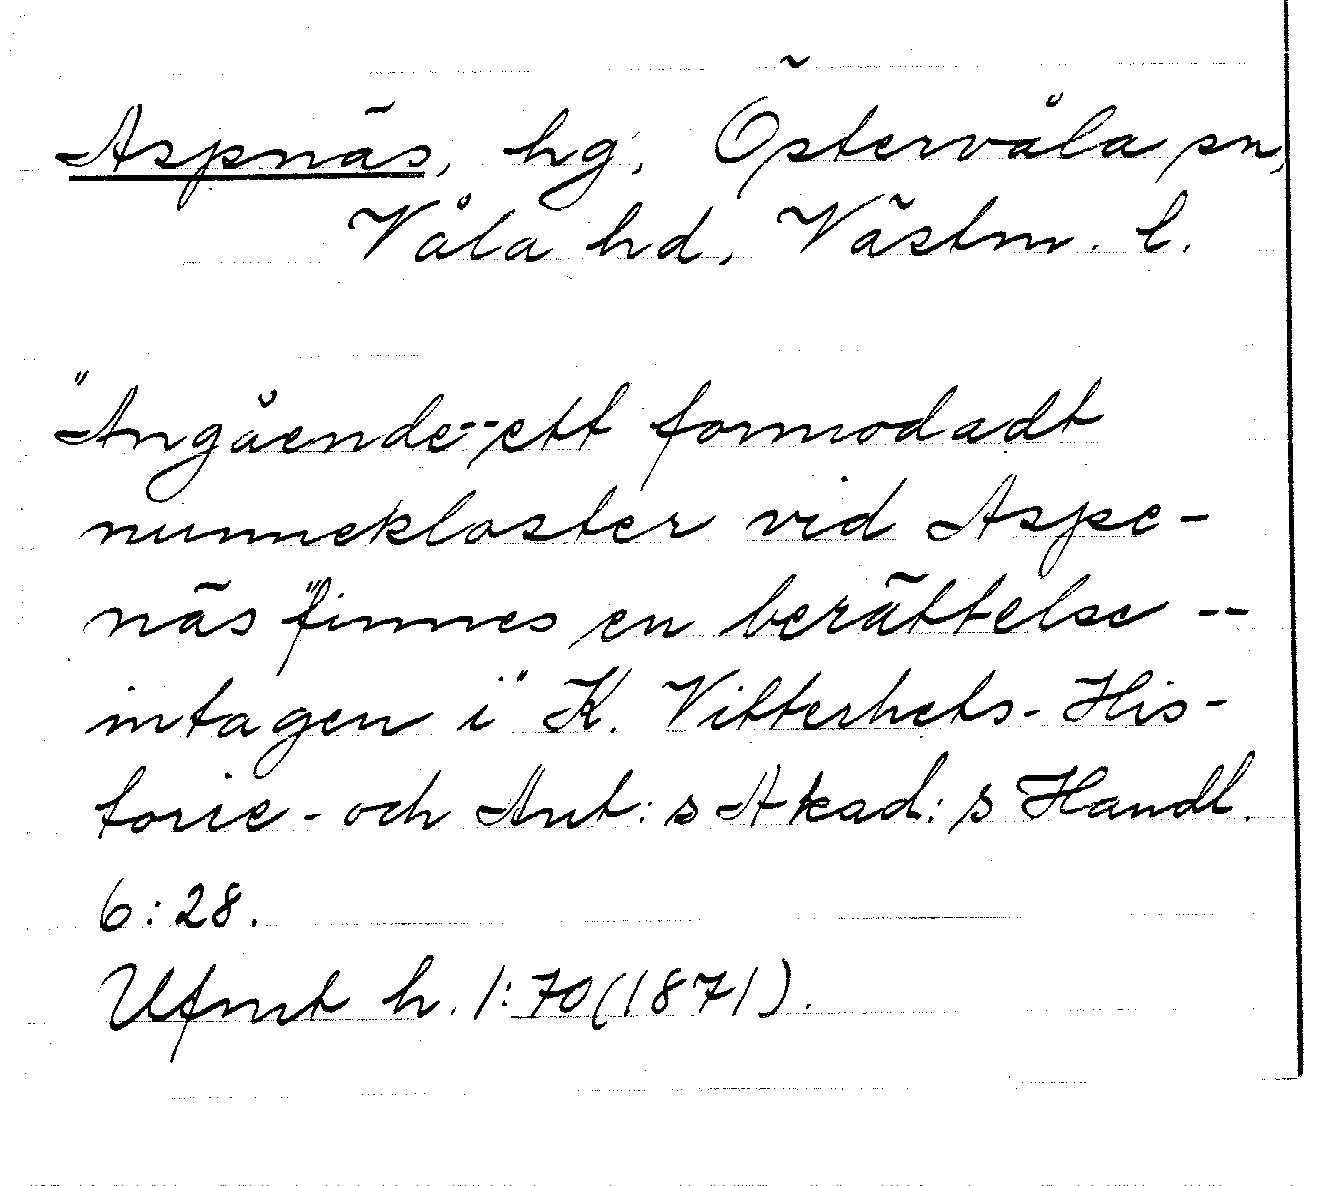 Aspnäs, hg, Östervåla sn,
Våla hd, Västm. l.
"Angående--ett formodadt
nunnekloster vid Aspe-
näs "finnes en berättelse --
intagen i" K. Vitterhets- His-
torie- och Ant:s Akad:s Handl.
6:28.
Ufmt h. 1:70(1871).